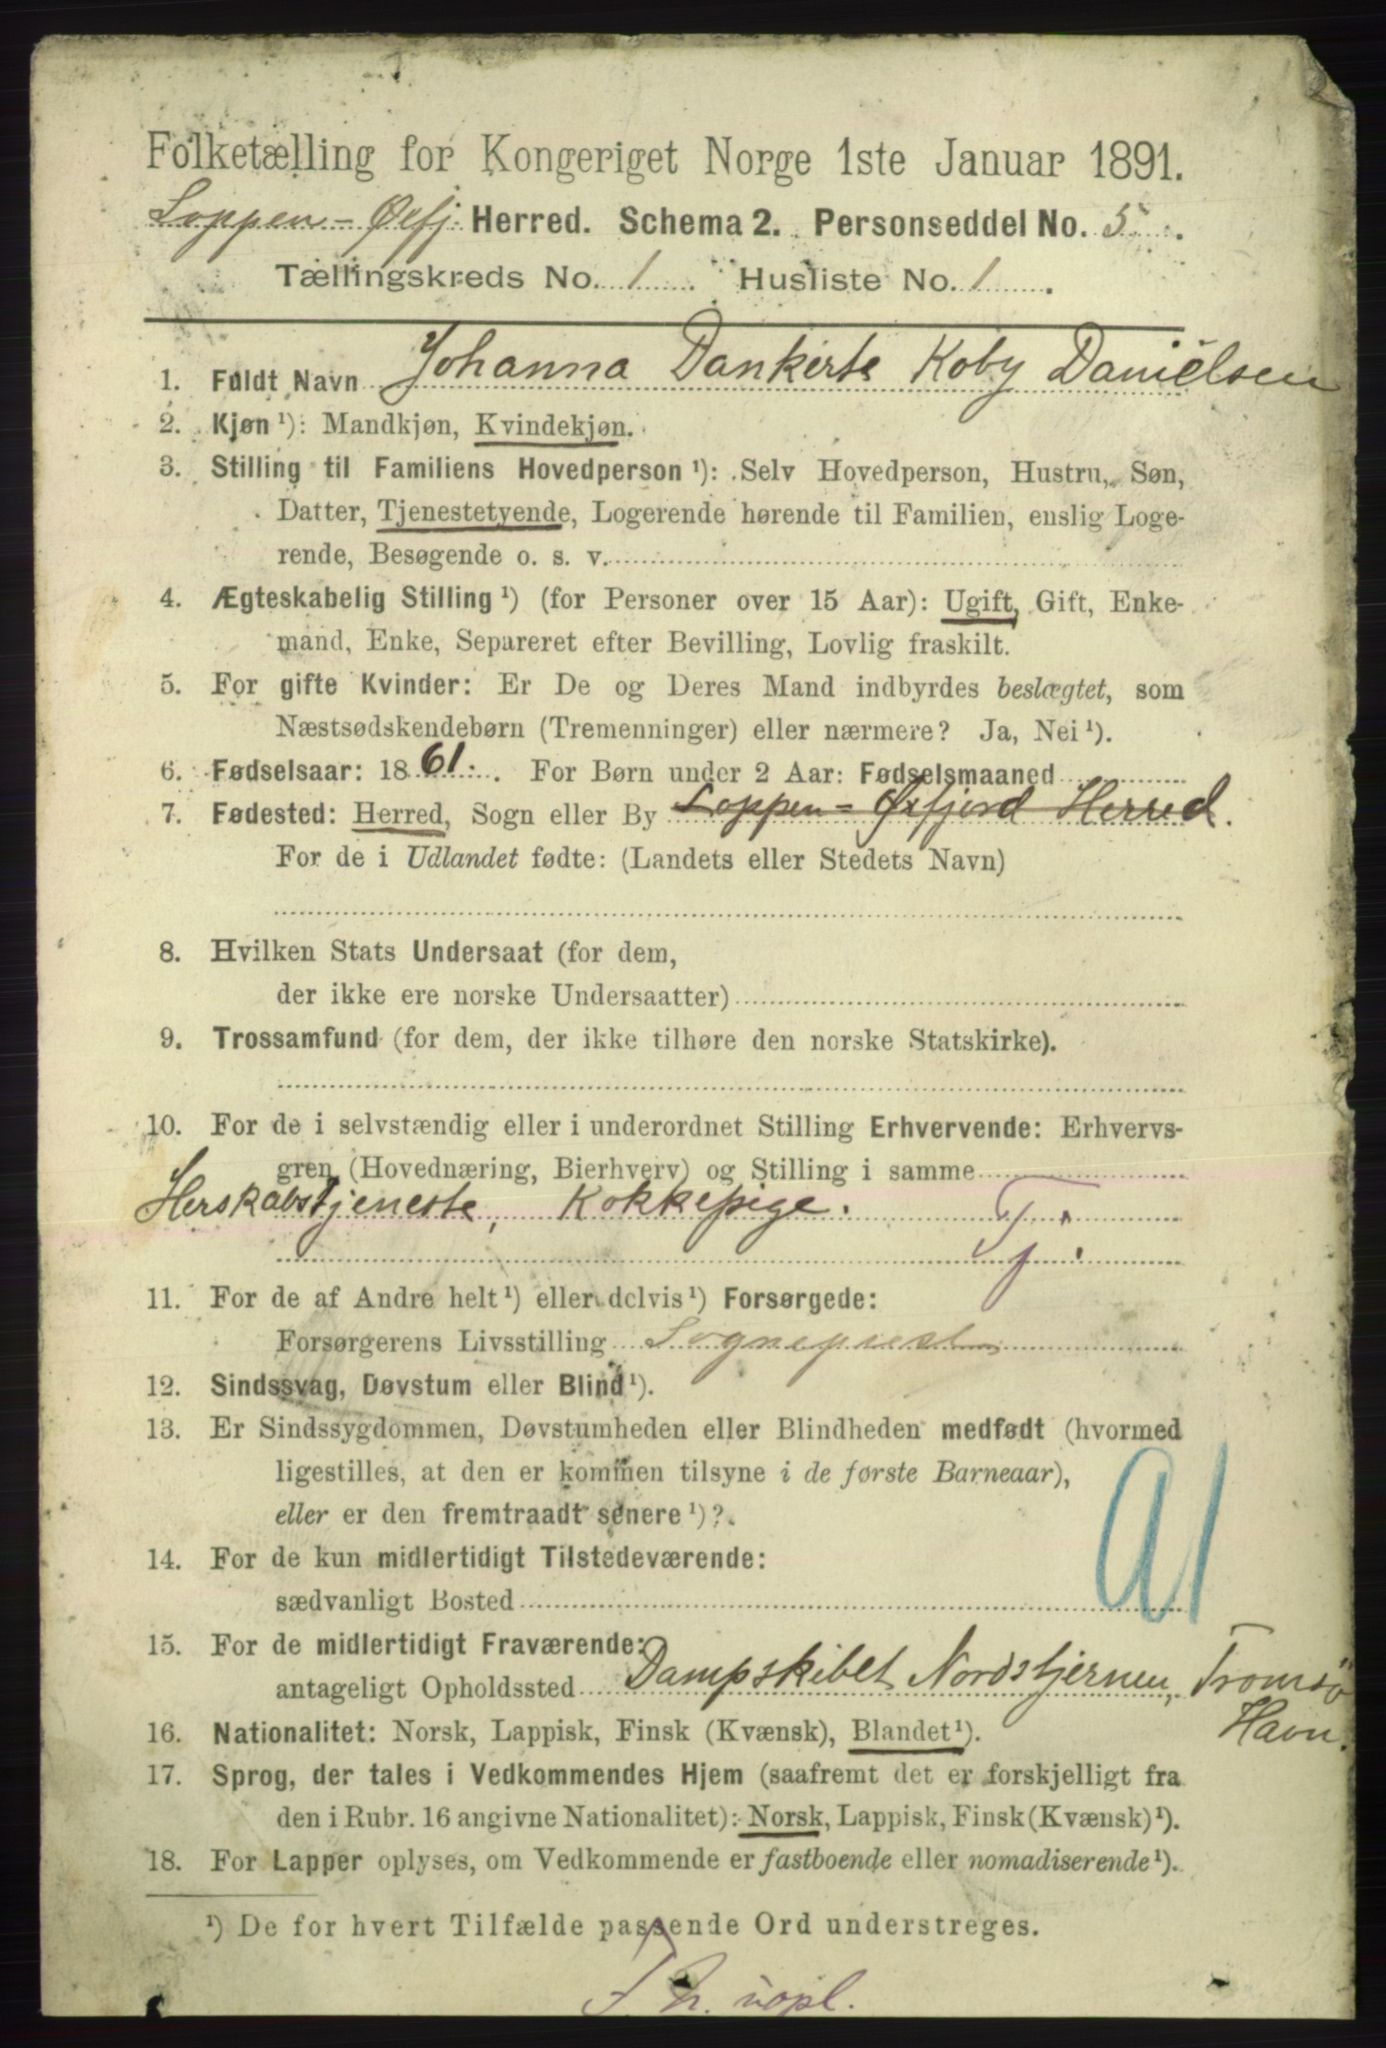 Folketælling for Kongeriget Norge 1ste Januar 1891.
Loppen-Øxfj. Herred. Schema 2. Personseddel No. 5.
Tællingskreds No. 1. Husliste No. 1.
1. Fuldt Navn Johanna Dankerte Koby Daniélsen
2. Kjøn ¹): Mandkjøn, Kvindekjøn.
3. Stilling til Familiens Hovedperson ¹): Selv Hovedperson, Hustru, Søn,
Datter, Tjenestetyende, Logerende hørende til Familien, enslig Loge-
rende, Besøgende o. s. v.
4. Ægteskabelig Stilling ¹) (for Personer over 15 Aar): Ugift, Gift, Enke-
mand, Enke, Separeret efter Bevilling, Lovlig fraskilt.
5. For gifte Kvinder: Er De og Deres Mand indbyrdes beslægtet, som
Næstsødskendebørn (Tremenninger) eller nærmere? Ja, Nei ¹).
6. Fødselsaar: 1861. For Børn under 2 Aar: Fødselsmaaned
7. Fødested: Herred, Sogn eller By Loppen-Øxfjord Herred.
For de i Udlandet fødte: (Landets eller Stedets Navn)
8. Hvilken Stats Undersaat (for dem,
der ikke ere norske Undersaatter)
9. Trossamfund (for dem, der ikke tilhøre den norske Statskirke).
10. For de i selvstændig eller i underordnet Stilling Erhvervende: Erhvervs-
gren (Hovednæring, Bierhverv) og Stilling i samme
Herskabstjeneste, Kokkepige. Tj.
11. For de af Andre helt ¹) eller delvis ¹) Forsørgede:
Forsørgerens Livsstilling Sognepresten
12. Sindssvag, Døvstum eller Blind ¹).
13. Er Sindssygdommen, Døvstumheden eller Blindheden medfødt (hvormed
ligestilles, at den er kommen tilsyne i de første Barneaar),
eller er den fremtraadt senere ¹)?
14. For de kun midlertidigt Tilstedeværende:
sædvanligt Bosted
91
15. For de midlertidigt Fraværende:
antageligt Opholdssted Dampskibet Nordstjernen, Tromsö
Havn.
16. Nationalitet: Norsk, Lappisk, Finsk (Kvænsk), Blandet ¹).
17. Sprog, der tales i Vedkommendes Hjem (saafremt det er forskjelligt fra
den i Rubr. 16 angivne Nationalitet): Norsk, Lappisk, Finsk (Kvænsk) ¹).
18. For Lapper oplyses, om Vedkommende er fastboende eller nomadiserende ¹).
¹) De for hvert Tilfælde passende Ord understreges.